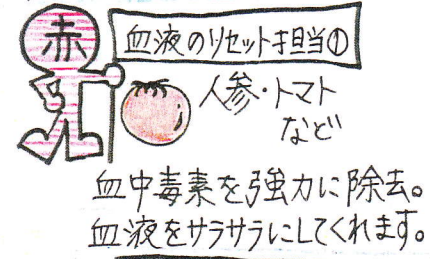 赤
血液のリセット担当①
人参・トマト
など
血中毒素を強力に除去。
血液をサラサラにしてくれます。